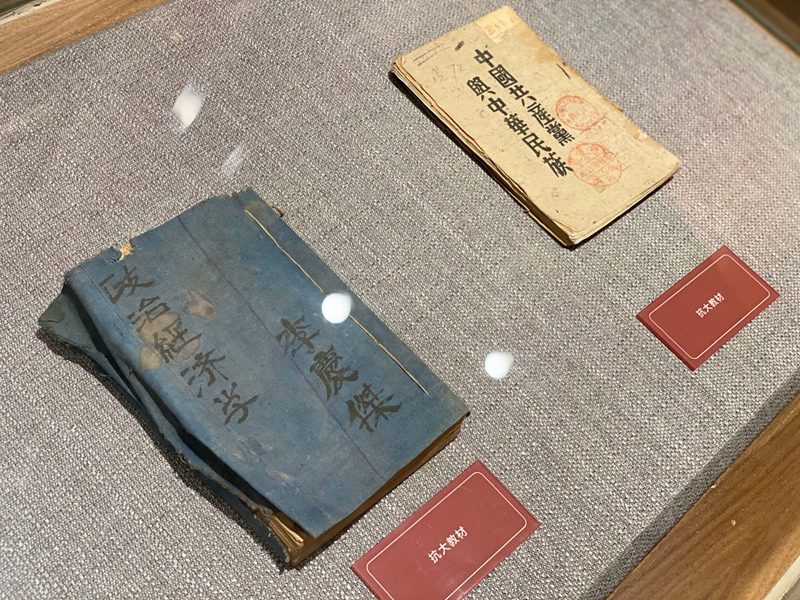 中國共產黨
與中華民族
抗大教材
政治經济学
李慶傑
抗大教材